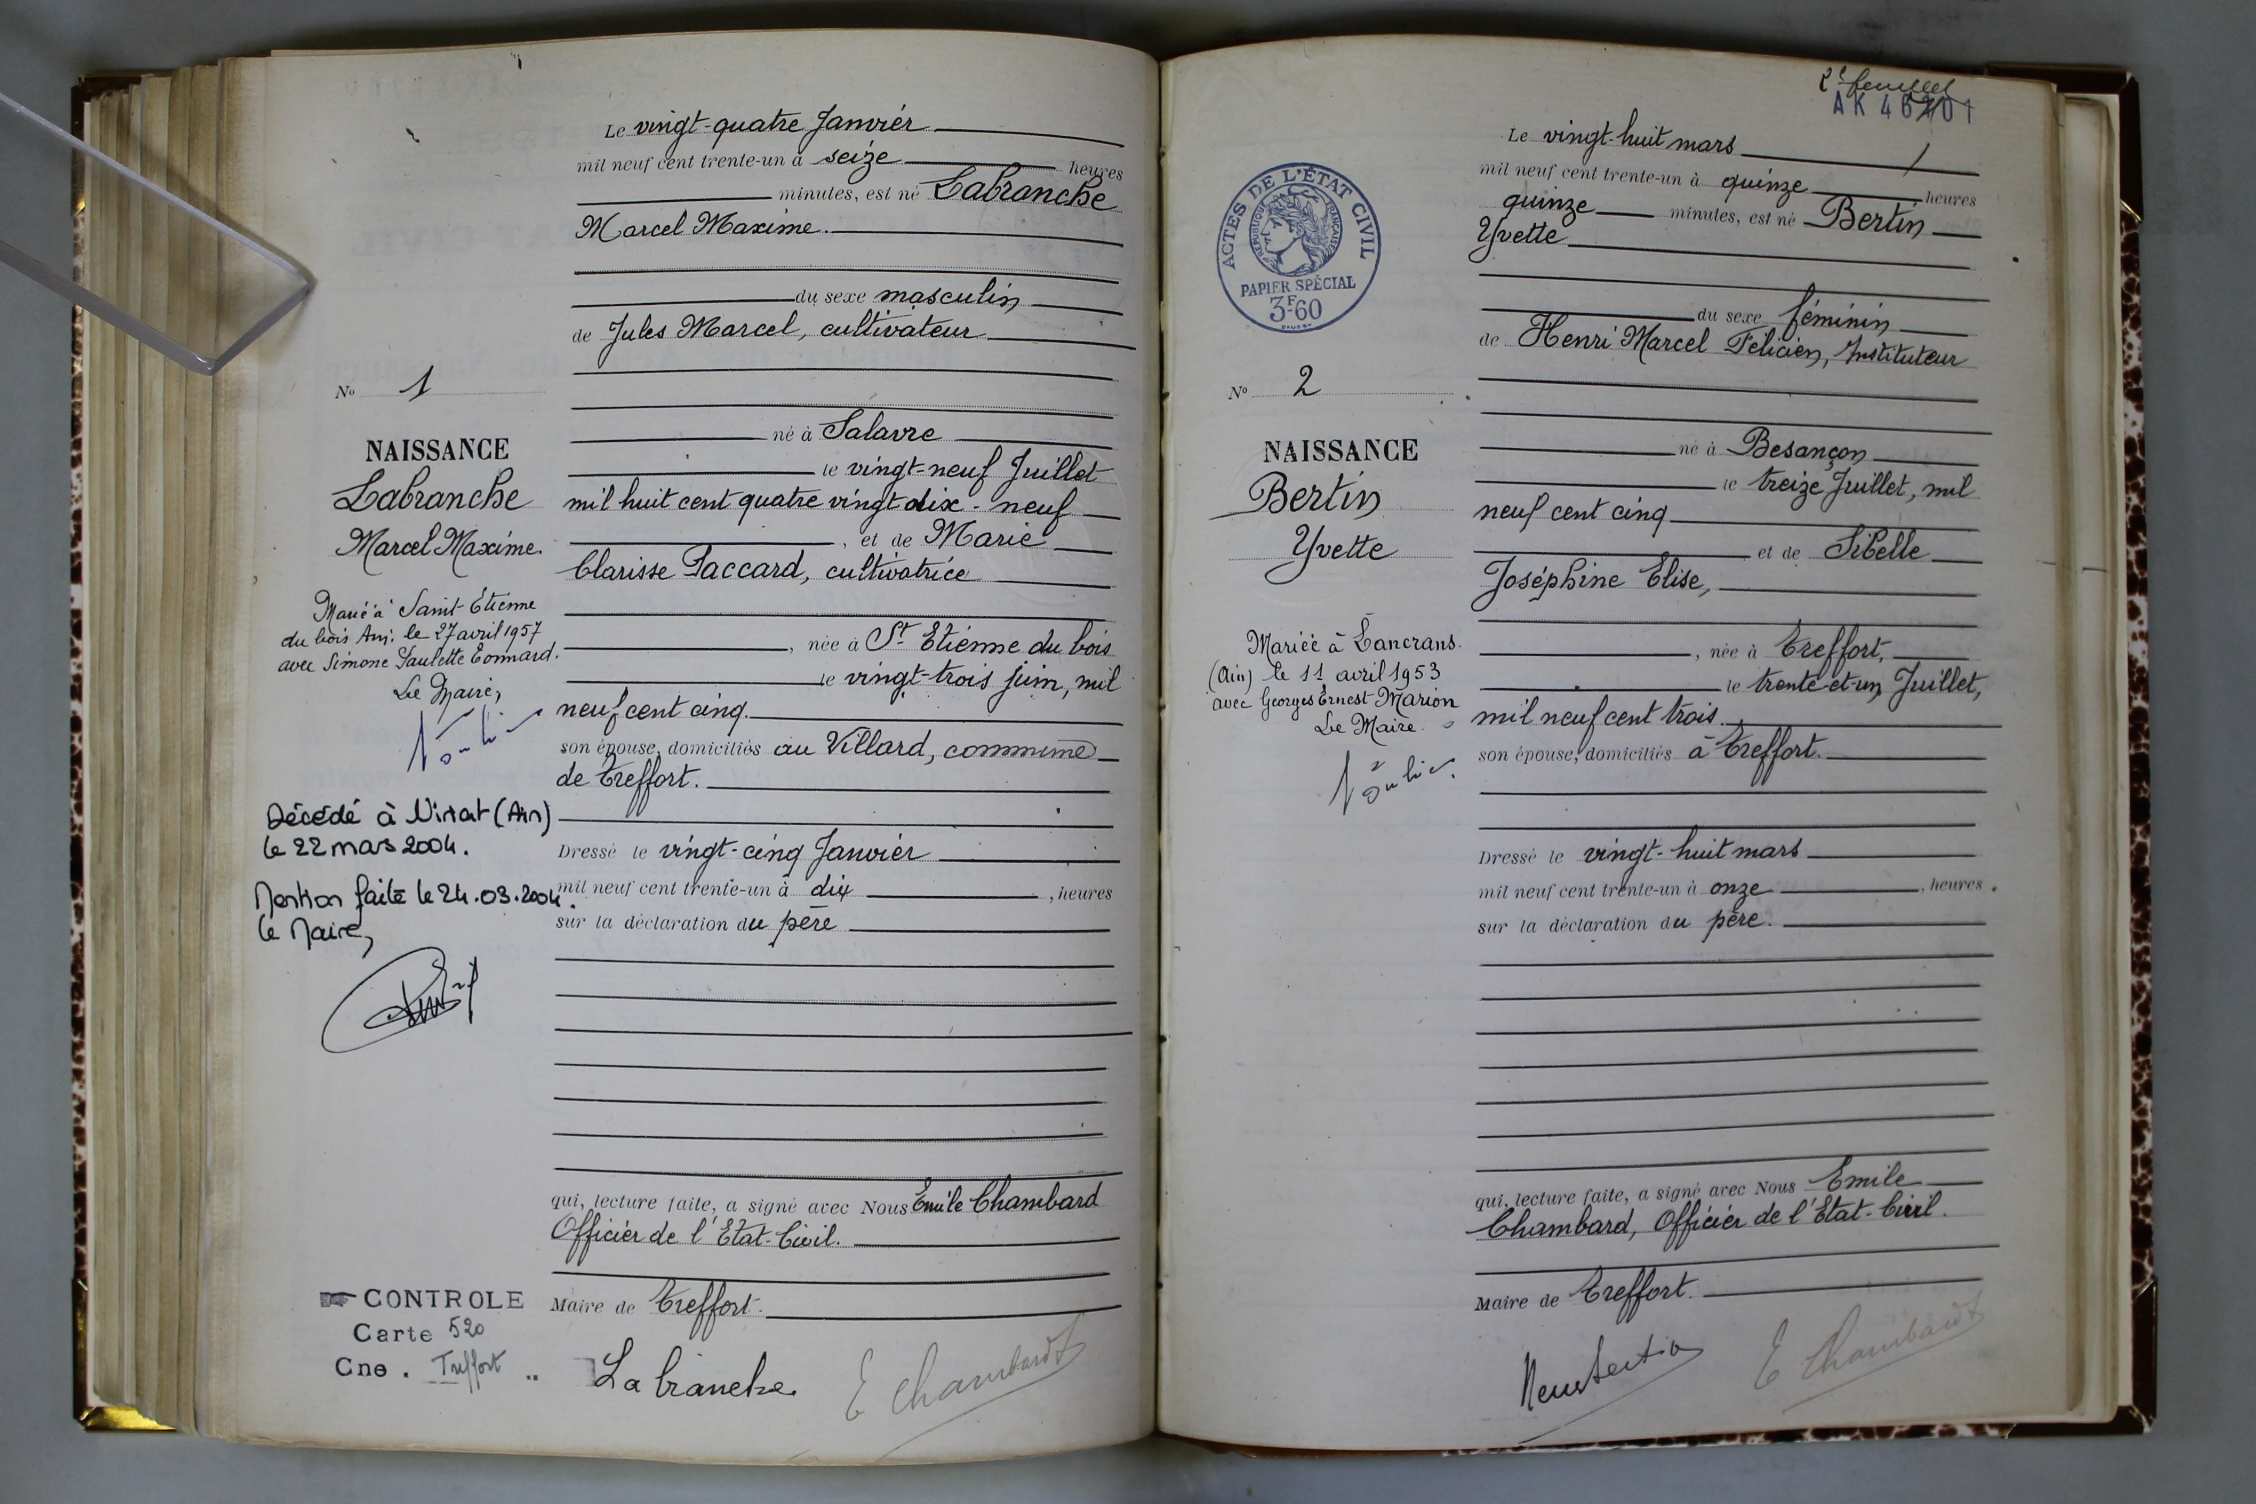 Le vingt-quatre Janvier
mil neuf cent trente-un à seize heures
minutes, est né Labranche
Marcel Maxime.
du sexe masculin
de Jules Marcel, cultivateur
né à Salavre
le vingt-neuf Juillet
mil huit cent quatre vingt dix-neuf
, et de Marie
Clarisse Paccard, cultivatrice
, née à St Etienne du bois
le vingt-trois juin, mil
neuf cent cinq.
son épouse, domiciliés au Villard, commune
de Treffort.
Dressé le vingt-cinq Janvier
mil neuf cent trente-un à dix , heures
sur la déclaration du père
qui, lecture faite, a signé avec Nous Emile Chambard
Officier de l'Etat-Civil.
Maire de Treffort.
Labranche
E Chambard
No 1
NAISSANCE
Labranche
Marcel Maxime.
Marié à Saint-Étienne
du bois Ain. le 27 avril 1957
avec Simone Paulette Eonnard.
Le Maire,
Décédé à Viriat (Ain)
le 22 mars 2004.
Mention faite le 24.03.2004.
le Maire,
CONTROLE
Carte 520
Cne. Treffort
2e feuillet
AK 46 01
Le vingt-huit mars
mil neuf cent trente-un à quinze heures
quinze minutes, est né Bertin
Yvette
du sexe féminin
de Henri Marcel Félicien, Instituteur
né à Besançon
le treize Juillet, mil
neuf cent cinq
et de Sibelle
Joséphine Elise,
, née à Treffort,
le trente-et-un Juillet,
mil neuf cent trois.
son épouse, domiciliés à Treffort.
Dressé le vingt-huit mars
mil neuf cent trente-un à onze , heures
sur la déclaration du père.
qui, lecture faite, a signé avec Nous Emile
Chambard, Officier de l'Etat-Civil.
Maire de Treffort.
E Chambard
ACTES DE L'ÉTAT CIVIL
RÉPUBLIQUE FRANÇAISE
PAPIER SPÉCIAL
3F60
No 2
NAISSANCE
Bertin
Yvette
Mariée à Lancrans.
(Ain) le 11 avril 1953
avec Georges Ernest Marion
Le Maire.